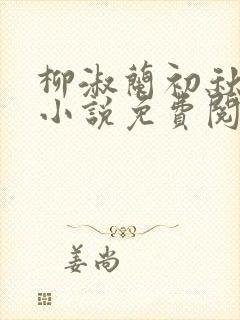 柳淑蘭初秋
小說免費閱
姜尚